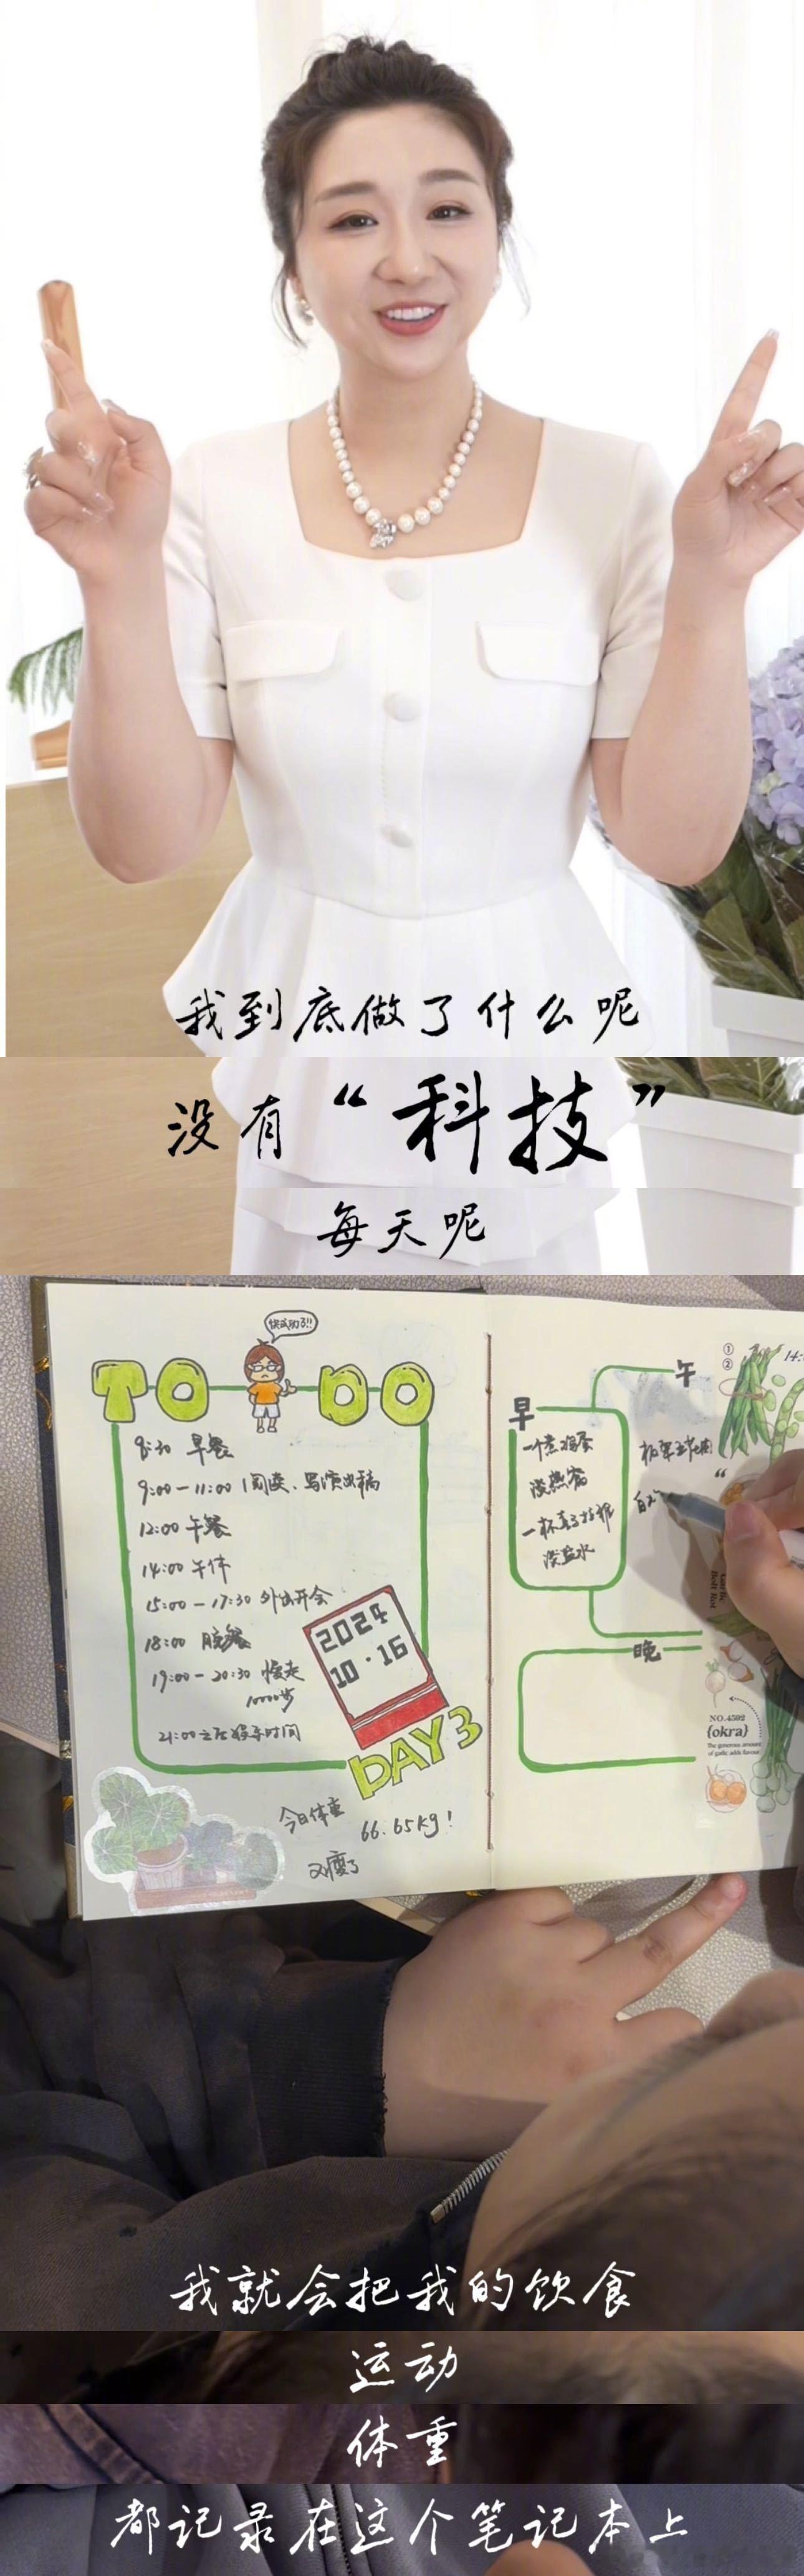 我到底做了什么呢
没有“科技”
每天呢
快成功了!!
TO DO
8:30 早餐
9:00-11:00 阅读、写演出稿
12:00 午餐
14:00 午休
15:00-17:30 外出开会
18:00 晚餐
19:00-20:30 慢走
10000步
21:00之后 娱乐时间
2024
10·16
DAY 3
今日体重 66.65kg!
又瘦了
早
一个煮鸡蛋
淡盐水
午
①
②
14:
晚
NO.4592
{okra}
The generous amount
of garlic adds flavour
我就会把我的饮食
运动
体重
都记录在这个笔记本上